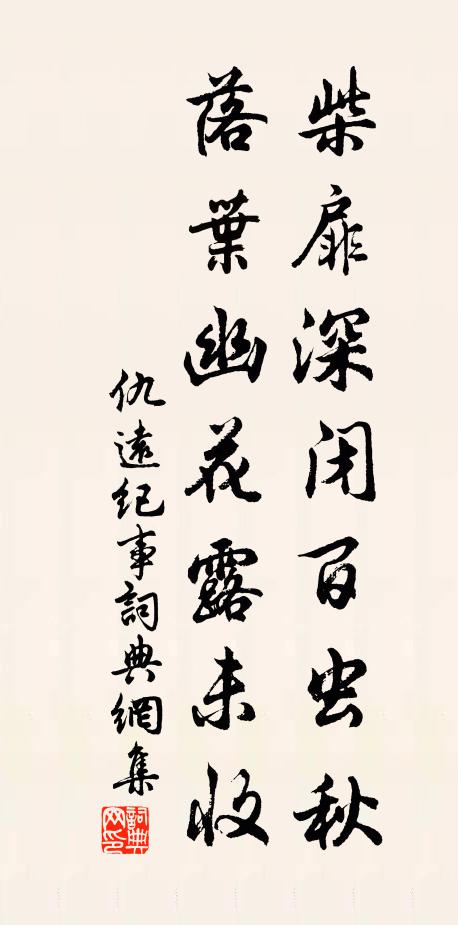 柴扉深闭百虫秋
落葉幽花露未收
仇遠纪事詞典網集
詞典网印